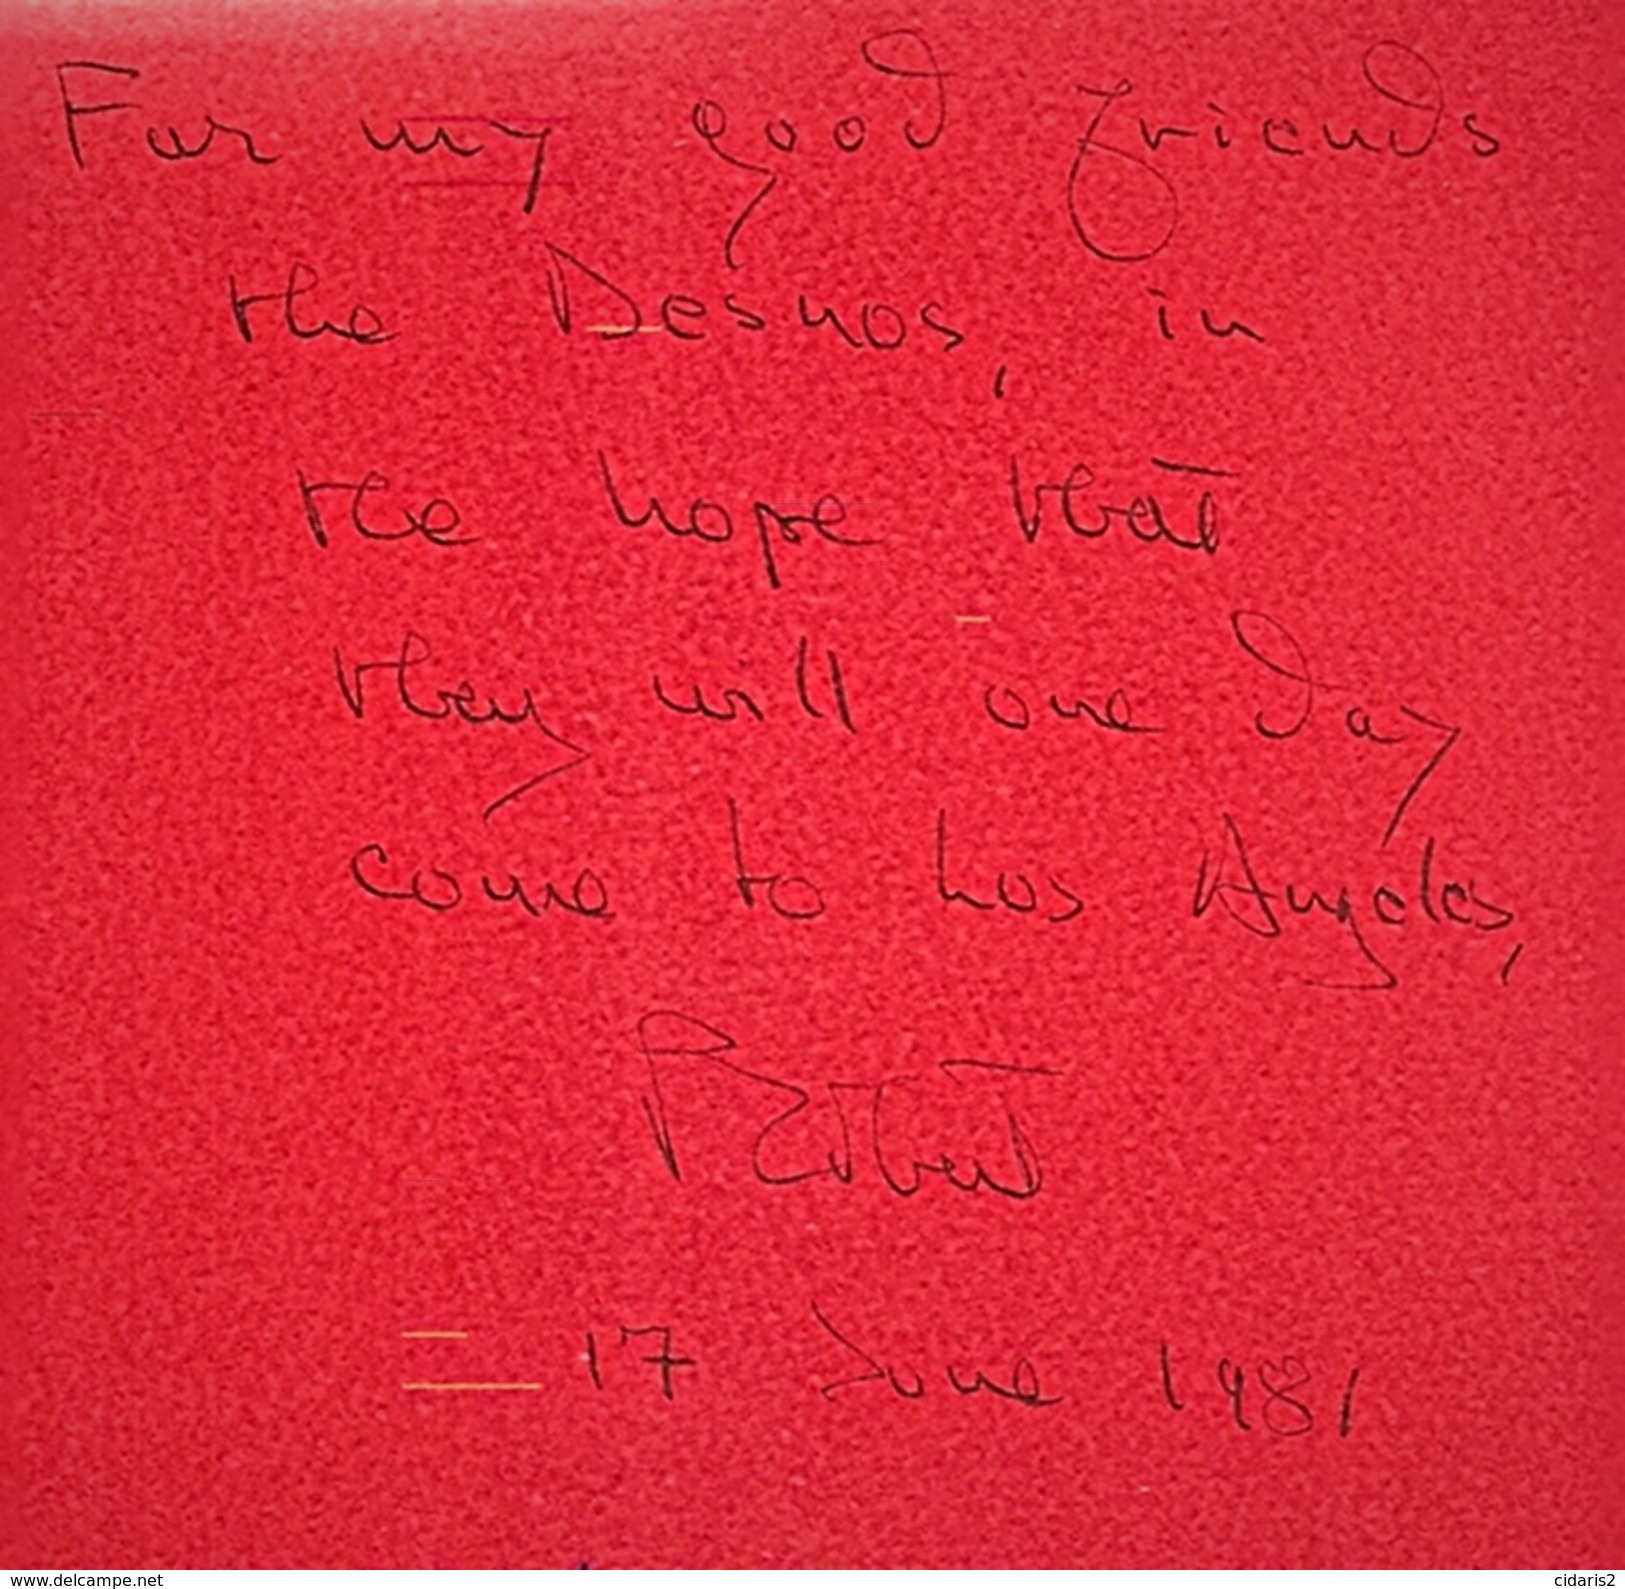 For my good friends
the Desnos, in
the hope that
they will one day
come to Los Angeles,
Robert
17 June 1981
www.delcampe.net
cidaris2